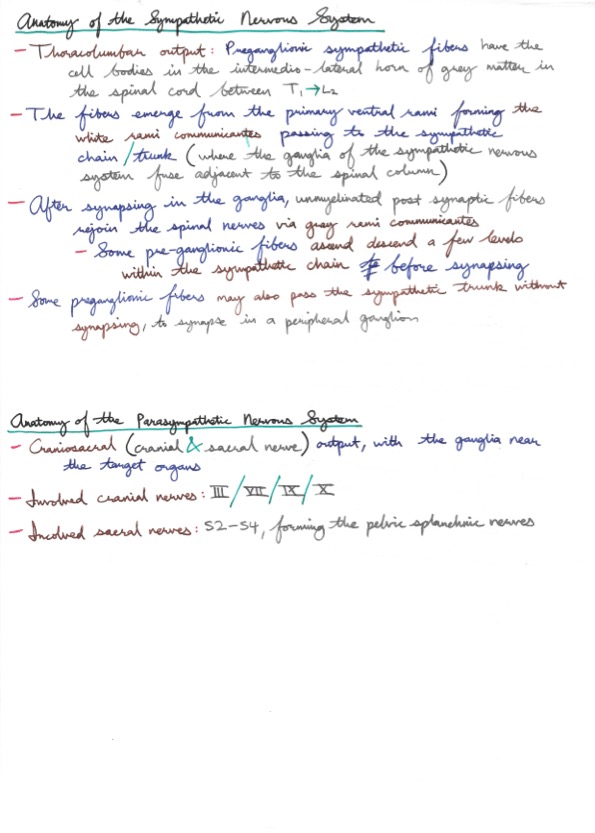 Anatomy of the Sympathetic Nervous System
- Thoracolumbar output: Preganglionic sympathetic fibers have the
cell bodies in the intermedio-lateral horn of grey matter in
the spinal cord between T1→L2
- The fibers emerge from the primary ventral rami forming the
white rami communicantes passing to the sympathetic
chain/trunk (where the ganglia of the sympathetic nervous
system fuse adjacent to the spinal column)
- After synapsing in the ganglia, unmyelinated post synaptic fibers
rejoin the spinal nerves via grey rami communicantes
- Some pre-ganglionic fibers ascend descend a few levels
within the sympathetic chain before synapsing
- Some preganglionic fibers may also pass the sympathetic trunk without
synapsing, to synapse in a peripheral ganglion
Anatomy of the Parasympathetic Nervous System
- Craniosacral (cranial & sacral nerve) output, with the ganglia near
the target organs
- Involved cranial nerves: III/VII/IX/X
- Incolved sacral nerves: S2-S4, forming the pelvic splanchnic nerves